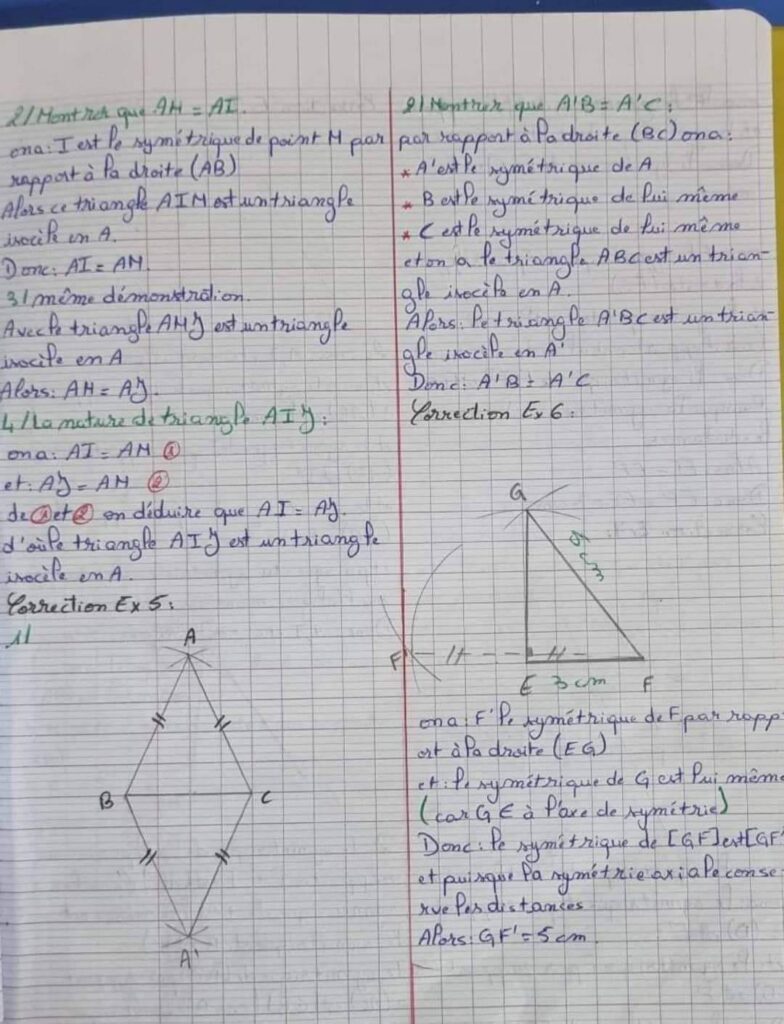 2/ Montrer que AM = AI.
ona: I est le symétrique de point M par
rapport à la droite (AB)
Alors ce triangle AIM est un triangle
isocèle en A.
Donc: AI = AM.
3/ même démonstration.
Avec le triangle AMJ est un triangle
isocèle en A
Alors: AM = AJ.
4/ La nature de triangle AIJ:
ona: AI = AM ①
et: AJ = AM ②
de ① et ② on déduire que AI = AJ.
d'où le triangle AIJ est un triangle
isocèle en A.
Correction Ex 5:
1/
A
B
C
A'
2/ Montrer que A'B = A'C:
par rapport à la droite (BC) ona:
* A' est le symétrique de A
* B est le symétrique de lui même
* C est le symétrique de lui même
et on a le triangle ABC est un trian-
gle isocèle en A.
Alors: le triangle A'BC est un trian-
gle isocèle en A'
Donc: A'B = A'C
Correction Ex 6:
G
5 cm
F'
E
3 cm
F
ona: F' le symétrique de F par rapp-
ort à la droite (EG)
et: le symétrique de G est lui même
(car G ∈ à l'axe de symétrie)
Donc: le symétrique de [GF] est [GF'
et puisque la symétrie axiale conse-
rve les distances
Alors: GF' = 5 cm.